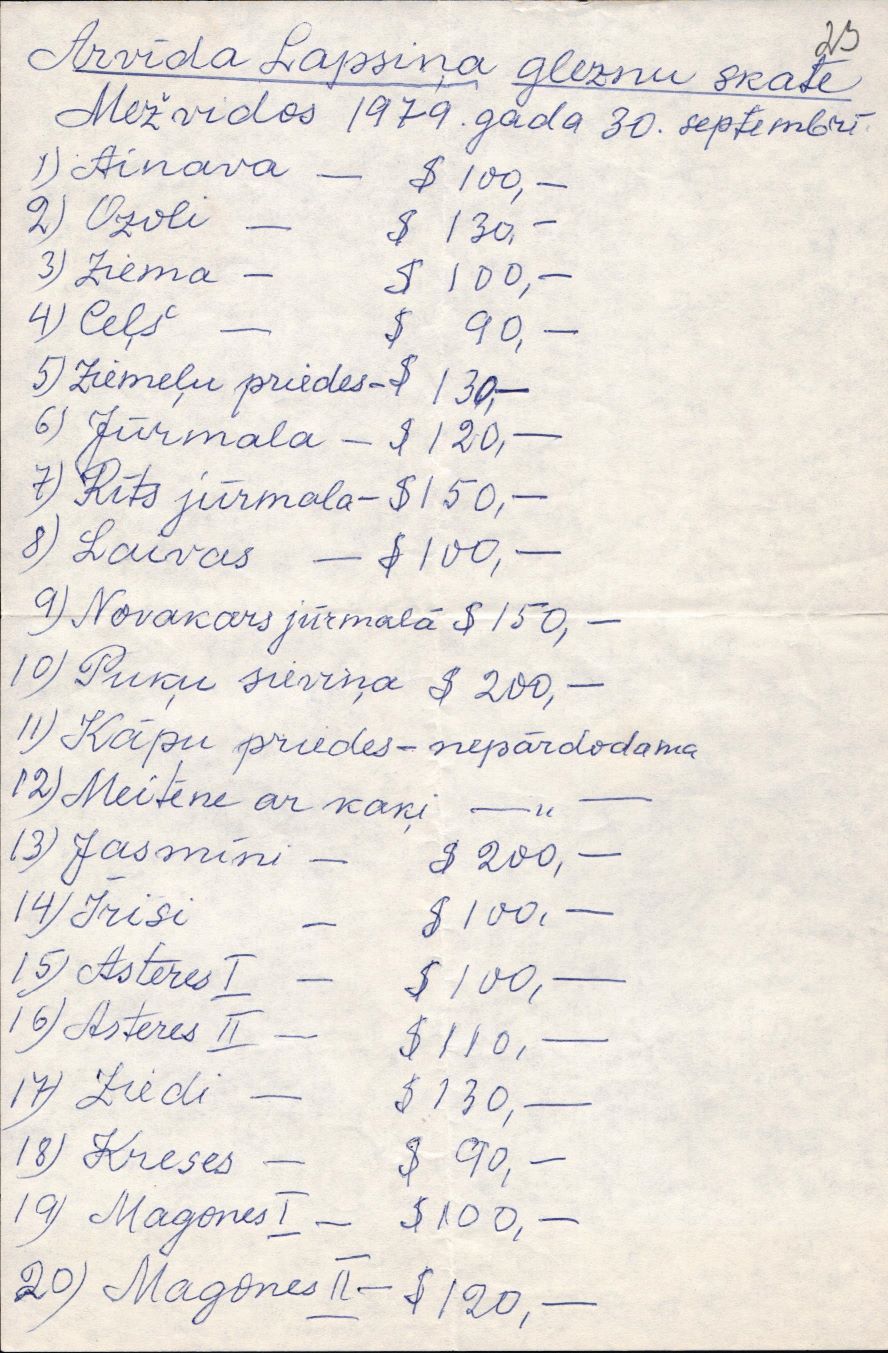 23
Arvīda Lapsiņa gleznu skate
Mežvidos 1979. gada 30. septembrī.
1) Ainava — $ 100,—
2) Ozoli — $ 130,—
3) Ziema — $ 100,—
4) Ceļš — $ 90,—
5) Ziemeļu priedes – $ 130,—
6) Jūrmala — $ 120,—
7) Rīts jūrmala – $ 150,—
8) Laivas — $ 100,—
9) Novakars jūrmalā $ 150,—
10) Puķu sieviņa $ 200,—
11) Kāpu priedes – nepārdodama
12) Meitene ar kaķi —„—
13) Jasmīni — $ 200,—
14) Īrisi — $ 100,—
15) Asteres I — $ 100,—
16) Asteres II — $ 110,—
17) Ziedi — $ 130,—
18) Kreses — $ 90,—
19) Magones I — $ 100,—
20) Magones II — $ 120,—